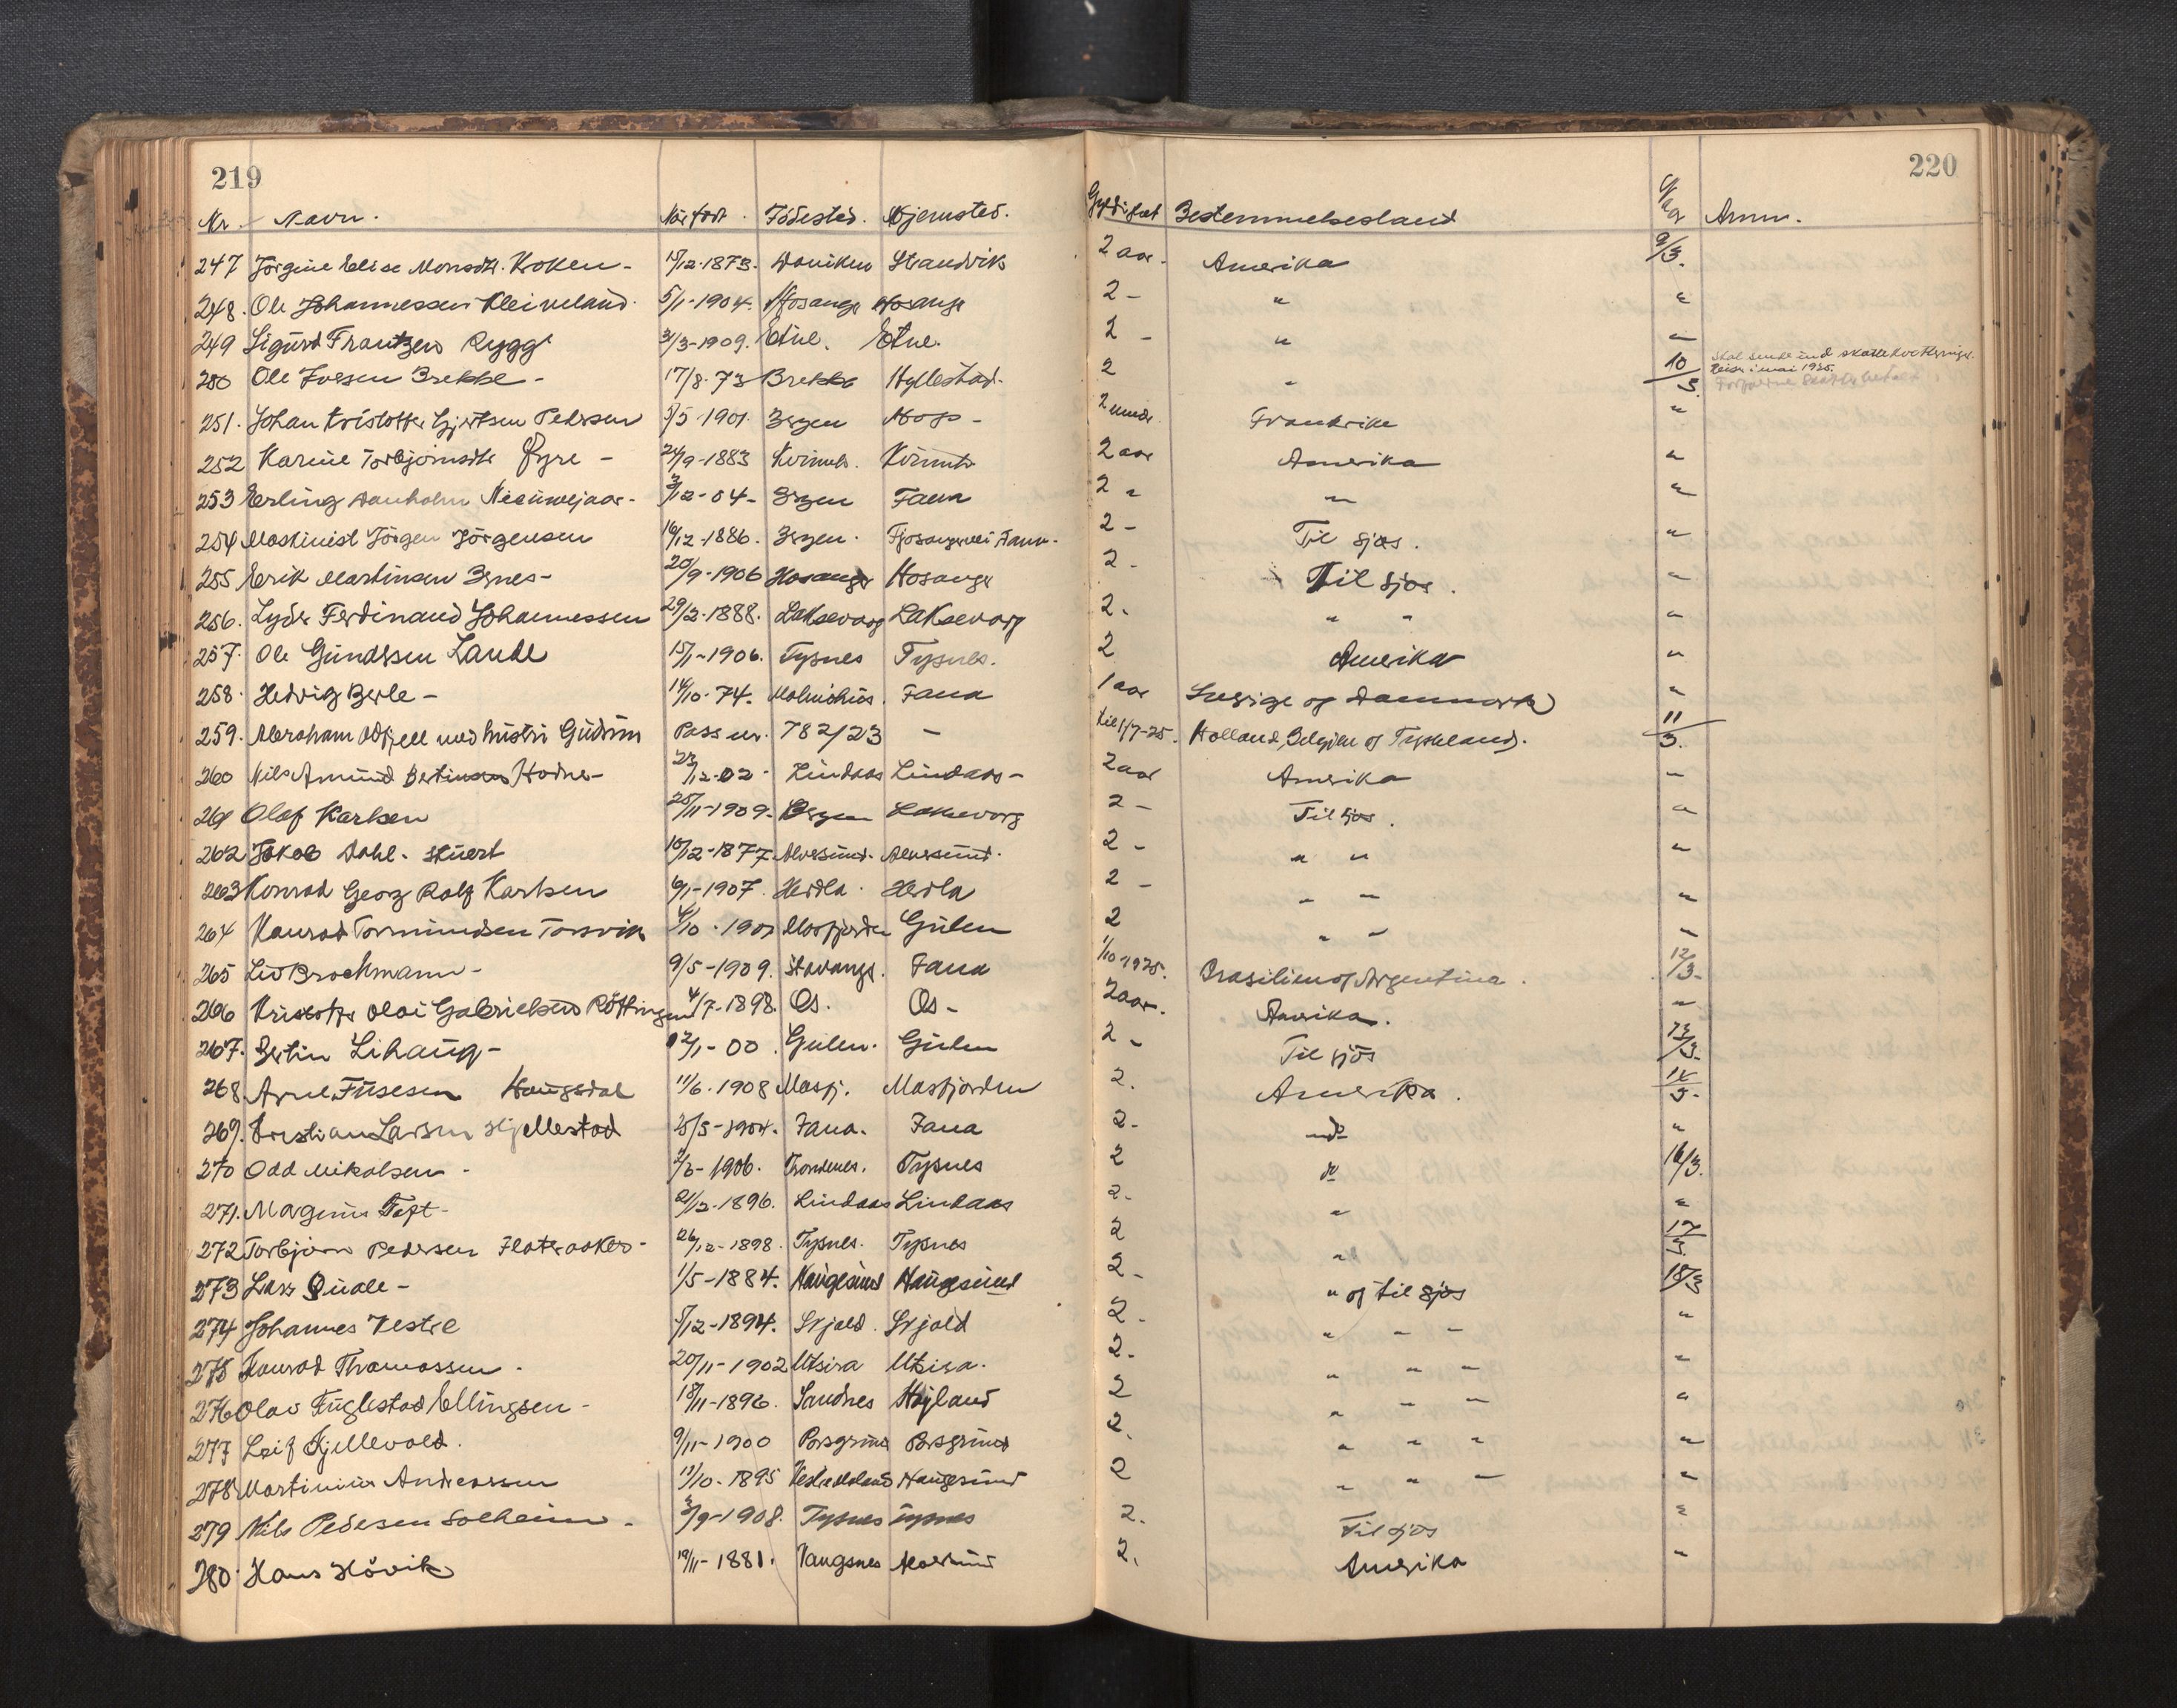 219 220
Nr. Navn. Når født. Födested. Hjemsted. Gyldighet Bestemmelsesland Anm.
247 Jörgine Elise Monsdtr. Kroken - 15/12-1873. Strandvik 2 aar. Amerika 9/3.
248. Ole Johannessen Kleiveland. 5/1-1904. Hosanger Hosanger 2 - " "
249 Sigurd Frantzen Rygg 31/3-1909. Etne. Etne. 2 - " "
250 Ole Brekke - 17/8-73 Brekke Hyllestad. 2 " 10/3 Skal sende ind skattekvittering. Reise i mai 1925.
251. Johan Kristoffer Gjertsen Pedersen 5/5-1901. Bergen Hop - 2 mndr. Frankrike "
252 Karine Torbjörnsdtr Øyre - 24/9-1883 Kvinnh. Kvinnh. 2 aar Amerika "
253 Erling Danholm Nieuwejaar - 3/12-04 - Bergen Fana 2 " " "
254 Maskinist Jörgen Jörgensen 16/12-1886. Bergen. Fjösangervei Fana. 2 - Til sjøs. "
255 Erik Martinsen - 20/9-1906 Hosanger Hosanger 2 - Til sjøs. "
256. Lyder Ferdinand Johannessen 29/2-1888. Laksevaag Laksevaag 2. " " "
257. Ole Gundersen Lande 15/1-1906. Tysnes Tysnes. 2 Amerika "
258. Hedvig Berle - 14/10-74. Fana 1 aar Sverige og Danmark "
259. Abraham Odfjell med hustru Gudrun Pass nr. 782/23 - til 1/7-25. Holland, Belgien og Tyskland. 11/3.
260 Nils Amund Bertinsen Hodne - 23/12-02 - Lindaas Lindaas - 2 aar Amerika "
261 Olaf Karlsen 25/11-1909. Bergen Laksevaag 2 - Til sjøs. "
262 Jakob Dahl. stuert 10/12-1877 Alversund. Alversund. 2 - " " "
263 Konrad Georg Rolf Karlsen 6/1-1907. Herdla. Herdla 2 - " " "
264 Konrad Tormundsen Torsvik 4/10-1901 Masfjorden Gulen 2 " " "
265 Liv Brochmann - 9/5-1909. Stavanger. Fana 1/10-1925. Brasilien og Argentina. 12/3.
266 Kristoffer Olai Gabrielsen Röttingen 4/7-1898. Os. Os - 2 aar. Amerika. "
267. Bertin Lihaug - 12/1-00. Gulen. Gulen 2 - Til sjøs 13/3.
268 Arne Haugsdal 11/6-1908 Masfj. Masfjorden 2. Amerika. 14/3.
269. Kristian Larsen Hjellestad 25/5-1904. Fana. Fana 2 - do "
270 Odd Mikalsen - 2/6-1906. Trondenes. Tysnes 2 do 16/3.
271. Magnus Toft - 21/12-1896. Lindaas Lindaas 2 - " "
272 Torbjörn Pedersen Flateraaker - 26/12-1898. Tysnes. Tysnes 2 " 17/3.
273 Lars Qvale - 1/5-1884. Haugesund Haugesund 2 - " og til sjøs 18/3
274 Johannes Vestre 5/12-1894. Skjold. Skjold 2 - " " " "
275 Konrad Thomassen - 20/11-1902 Utsira Utsira. 2. " " " "
276 Olav Fuglestad Ellingsen - 18/11-1896. Sandnes Høyland 2 " " " "
277 Leif Kjellevold. 9/11-1900 Porsgrund Porsgrund 2. " " " "
278 Martinius Andreassen 13/10-1895 Haugesund 2 " " " "
279 Nils Pedersen Solheim - 3/9-1908. Tysnes Tysnes 2. Til sjøs "
280. Hans Hövik 19/11-1881. Vangsnes 2. Amerika "